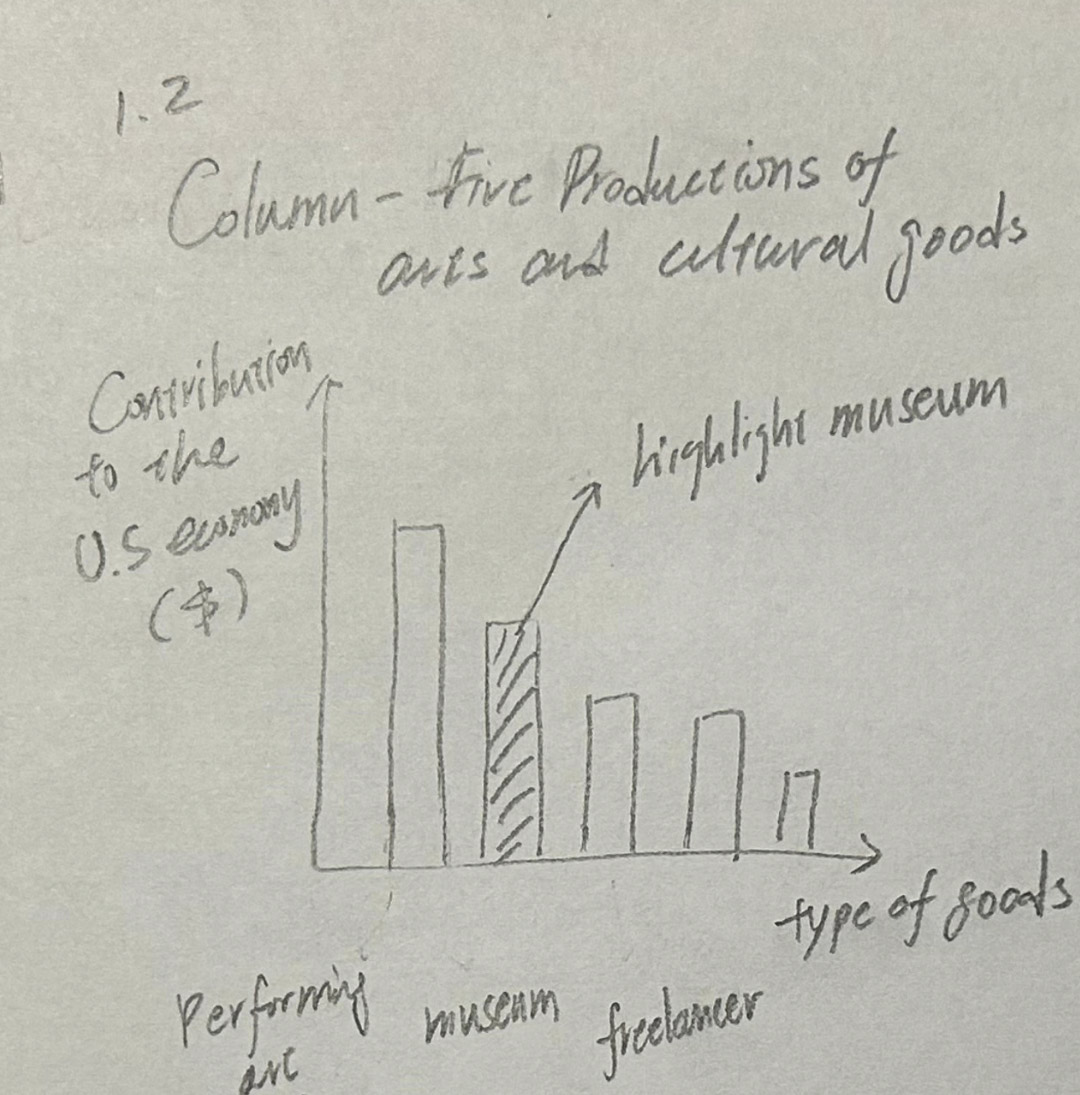 1.2
Column - Five Productions of
arts and cultural goods
Contribution
to the
U.S economy
($)
highlight museum
type of goods
Performing
art
museum
freelancer